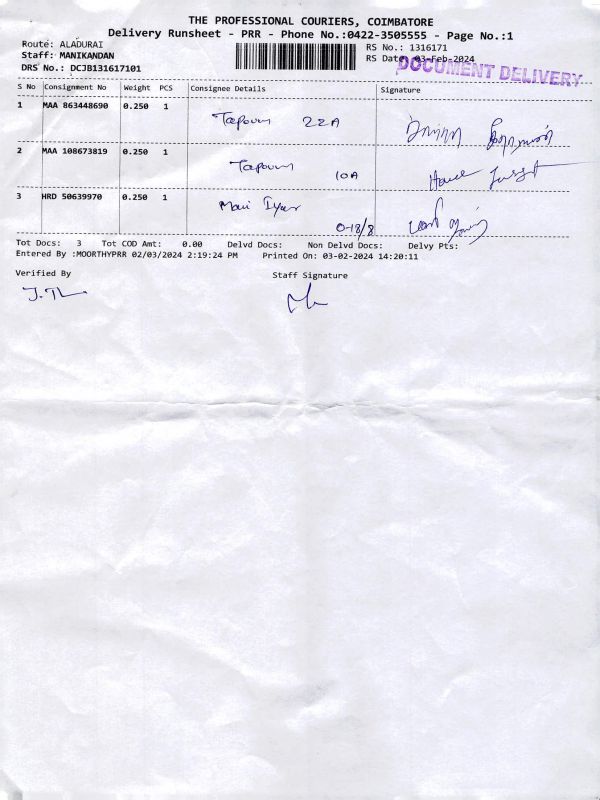 THE PROFESSIONAL COURIERS, COIMBATORE
Delivery Runsheet - PRR - Phone No.:0422-3505555 - Page No.:1
Route: ALADURAI
RS No.: 1316171
Staff: MANIKANDAN
RS Date: 03-Feb-2024
DOCUMENT DELIVERY
DRS No.: DCJB131617101
S No Consignment No Weight PCS Consignee Details Signature
1 MAA 863448690 0.250 1 22A
2 MAA 108673819 0.250 1 10A
3 HRD 50639970 0.250 1 0-18/8
Tot Docs: 3 Tot COD Amt: 0.00 Delvd Docs: Non Delvd Docs: Delvy Pts:
Entered By :MOORTHYPRR 02/03/2024 2:19:24 PM Printed On: 03-02-2024 14:20:11
Verified By Staff Signature